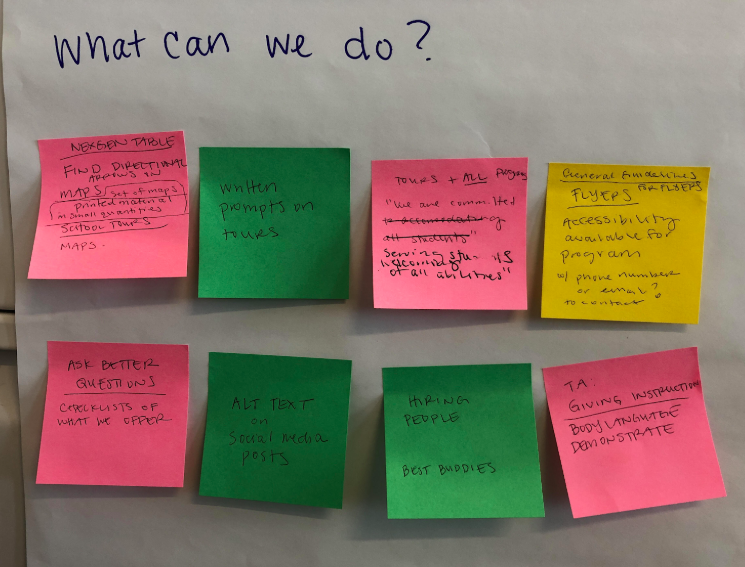 What can we do?
NEXGEN TABLE
FIND DIRECTIONAL
ARROWS ON
MAPS set of maps
Printed material
in small quantities
SCHOOL TOURS
MAPS.
written
prompts on
tours
TOURS + ALL Programs
"We are committed
to accommodating of
all students"
Serving students
of all abilities"
General Guidelines
FLYERS FOR FLYERS
Accessibility
available for
program
w/ phone number
or email?
to contact
ASK BETTER
QUESTIONS
CHECKLISTS OF
WHAT WE OFFER
ALT TEXT
on
Social media
posts
HIRING
PEOPLE
BEST BUDDIES
TA:
GIVING INSTRUCTION
BODY LANGUAGE
DEMONSTRATE